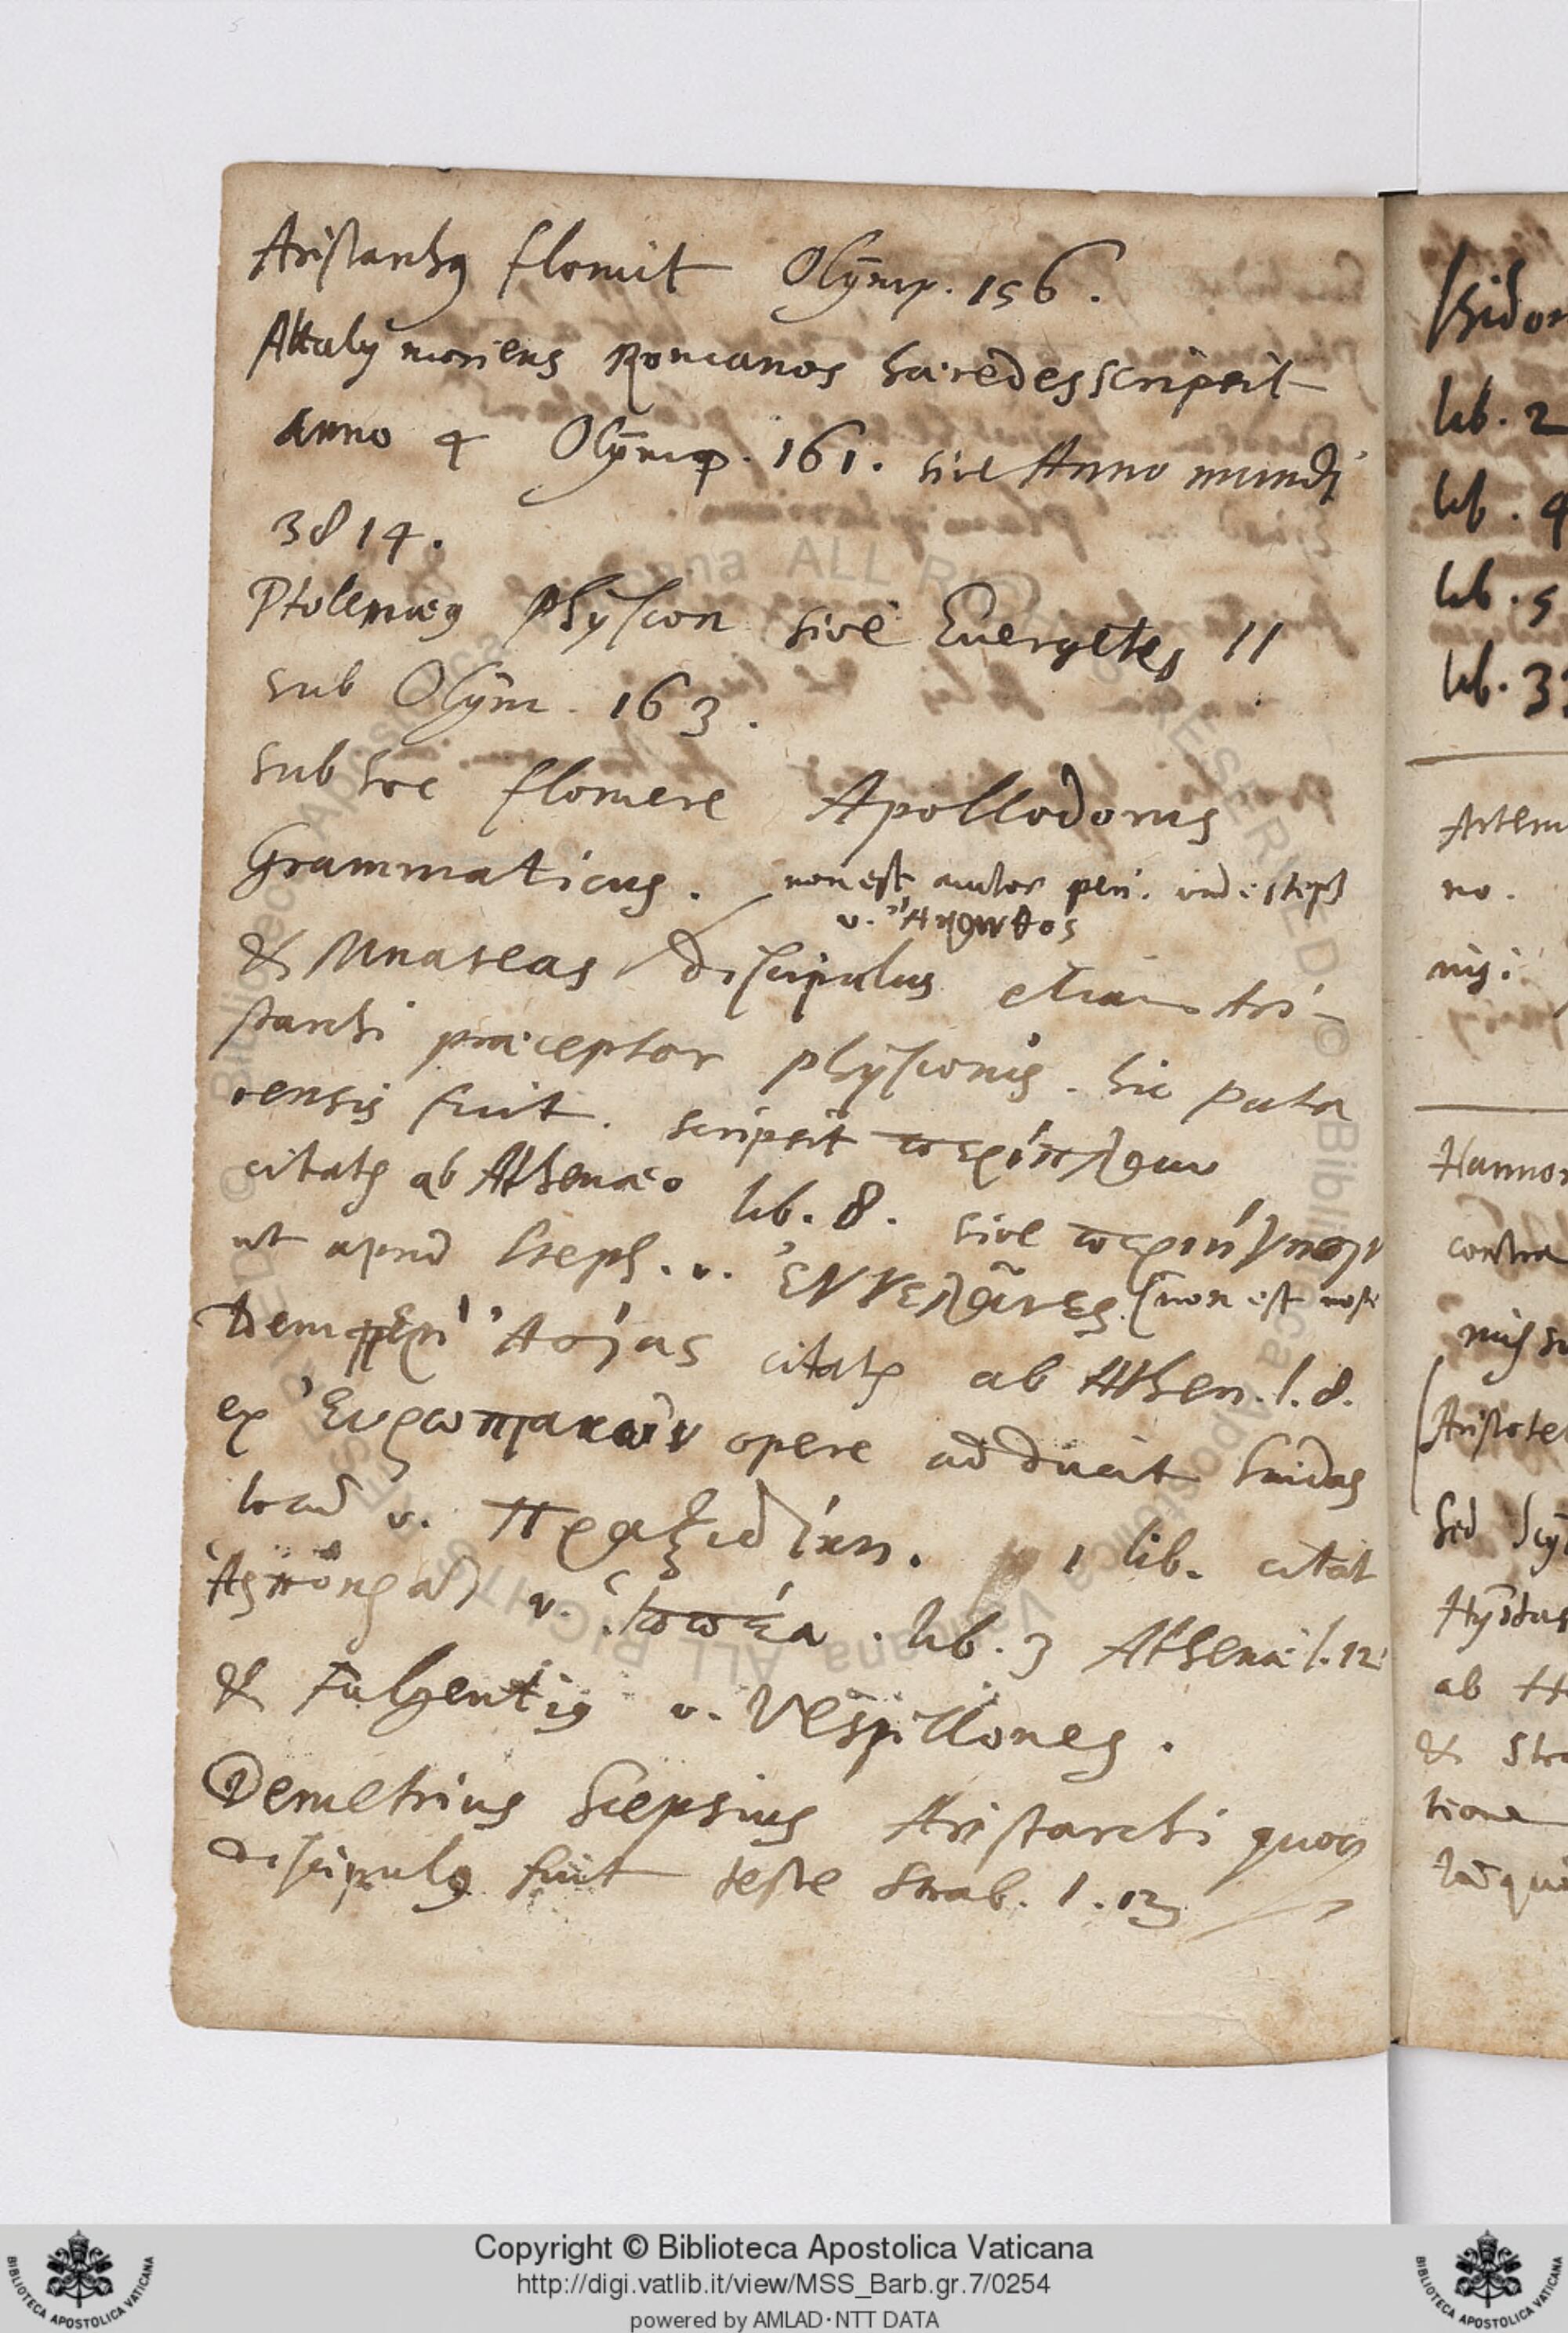 Aristarchus floruit Olymp. 156.
Attalus moriens Romanos haeredes scripsit
anno 4 Olymp. 161. sive Anno mundi
3814.
Ptolemaeus Physcon sive Euergetes II
sub Olym. 163.
sub hoc floruere Apollodorus
Grammaticus. non est autor peri. vide steph
v.
& Mnaseas discipulus etiam Ari-
starchi praeceptor physconis. hic pata
rensis fuit. scripsit περίπλουν
citatus ab Athenaeo lib. 8. sive περιήγησιν
ut apud Steph. v. Ἐγγελᾶνες (non est
Item περὶ Ἀσίας citatus ab Athen. l. 8.
ex Εὐρωπιακῶν opere adducit Suidas
v. Πραξιδίκη. 1 lib. citat
v. lib. 3 Athenae l. 12
& Fulgentius v. Vespillones.
Demetrius Scepsius Aristarchi quoque
discipulus fuit teste Strab. l. 13
lib. 2
lib. 4
lib. 5
Hannon
contra
ab
&
Copyright © Biblioteca Apostolica Vaticana
http://digi.vatlib.it/view/MSS_Barb.gr.7/0254
powered by AMLAD·NTT DATA
BIBLIOTECA APOSTOLICA VATICANA
BIBLIOTECA APOSTOLICA VATICANA